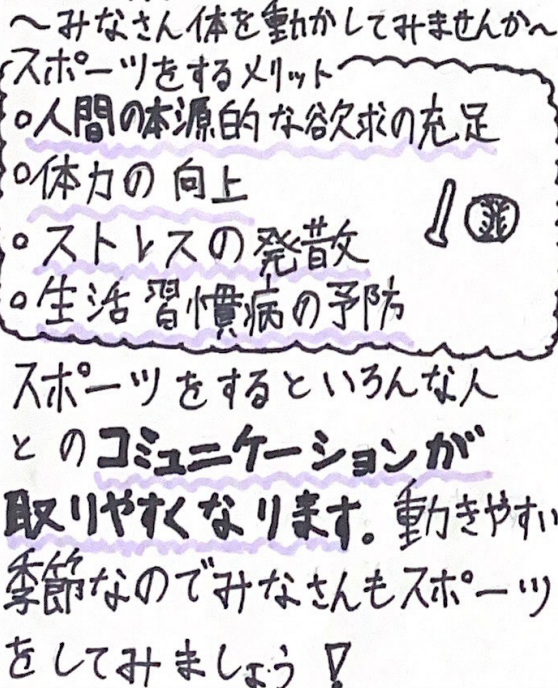 ～みなさん体を動かしてみませんか～
スポーツをするメリット
○人間の本源的な欲求の充足
○体力の向上
○ストレスの発散
○生活習慣病の予防
スポーツをするといろんな人
とのコミュニケーションが
取りやすくなります。動きやすい
季節なのでみなさんもスポーツ
をしてみましょう!